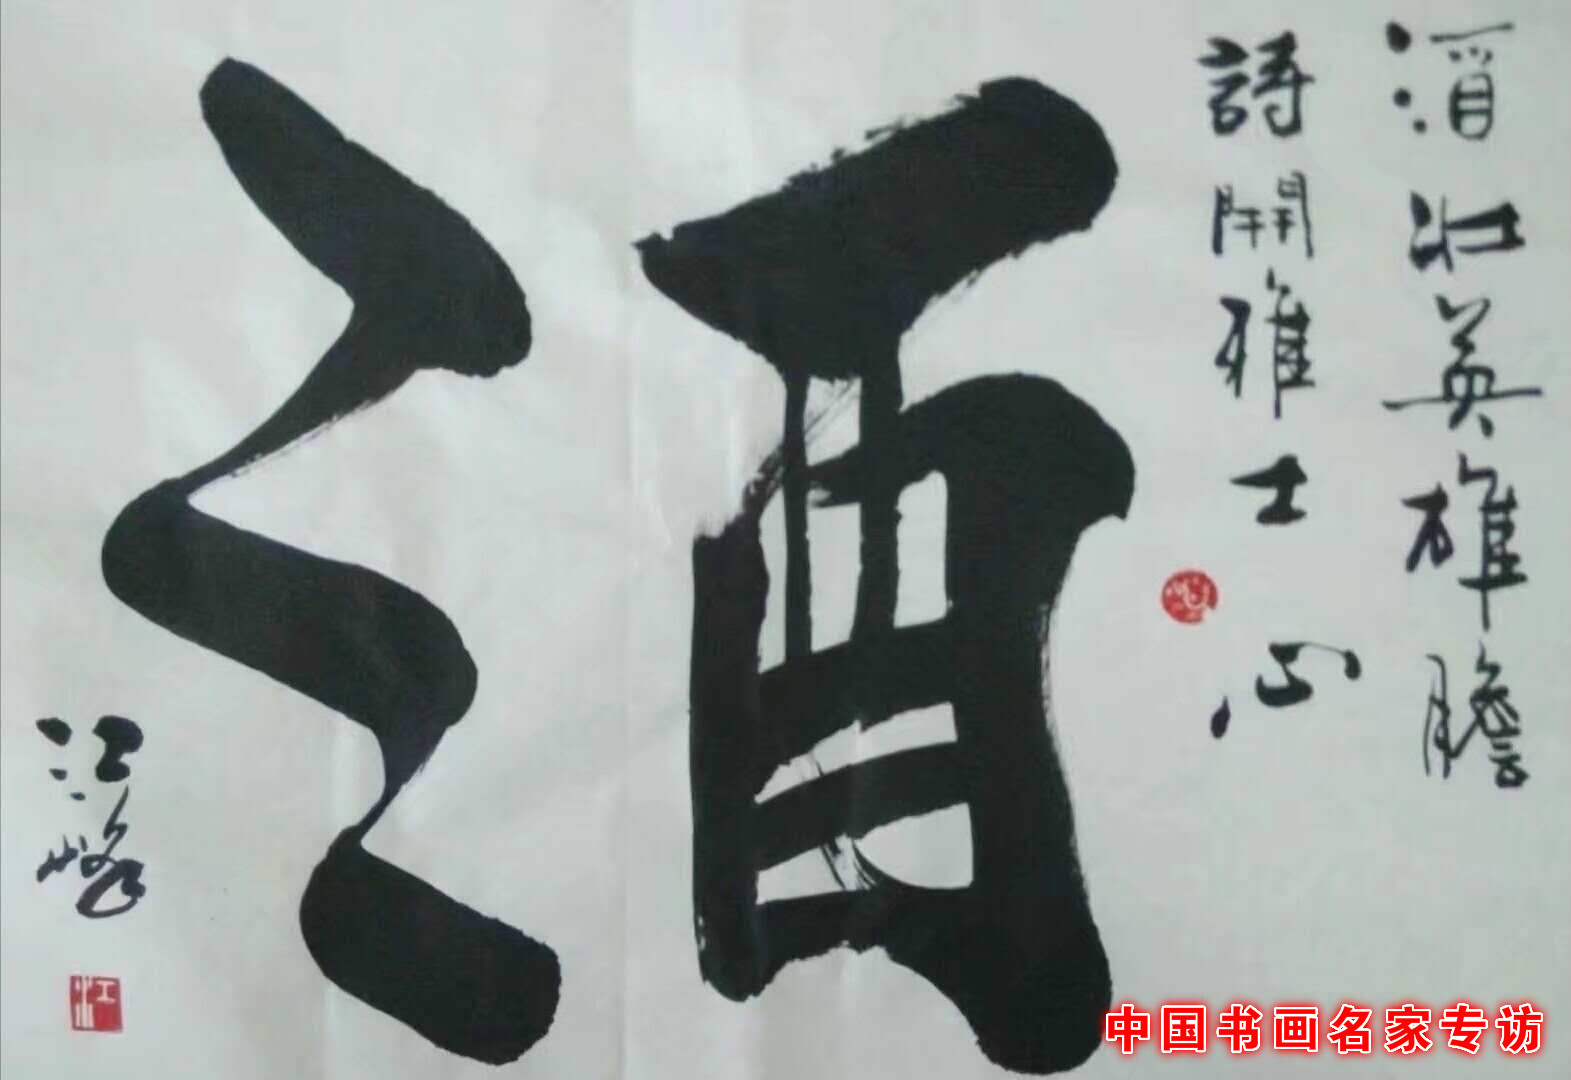 酒壮英雄膽
詩開雅士心
酒
江峰
江
中国书画名家专访